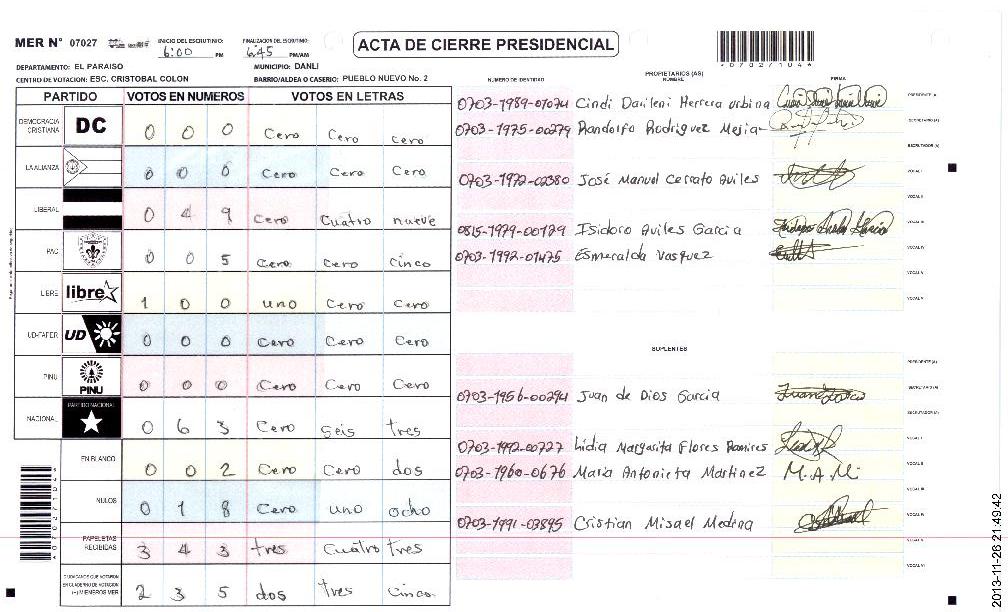 MER N° 07027 INICIO DEL ESCRUTINIO: 6:00 PM FINALIZACION DEL ESCRUTINIO: 6:45 PM/AM ACTA DE CIERRE PRESIDENCIAL
*07027104*
DEPARTAMENTO: EL PARAISO MUNICIPIO: DANLI
CENTRO DE VOTACION: ESC. CRISTOBAL COLON BARRIO/ALDEA O CASERIO: PUEBLO NUEVO No. 2
PARTIDO VOTOS EN NUMEROS VOTOS EN LETRAS
DEMOCRACIA CRISTIANA DC 0 0 0 Cero Cero cero
LA ALIANZA 0 0 0 Cero Cero Cero
LIBERAL 0 4 9 Cero Cuatro nueve
PAC 0 0 5 Cero Cero cinco
LIBRE libre 1 0 0 uno Cero Cero
UD-FAPER UD 0 0 0 Cero Cero Cero
PINU PINU 0 0 0 Cero Cero Cero
NACIONAL PARTIDO NACIONAL 0 6 3 Cero seis tres
EN BLANCO 0 0 2 Cero Cero dos
NULOS 0 1 8 Cero uno ocho
PAPELETAS RECIBIDAS 3 4 3 tres Cuatro tres
CIUDADANOS QUE VOTARON EN CUADERNO DE VOTACION (+) MIEMBROS MER 2 3 5 dos tres Cinco
NUMERO DE IDENTIDAD PROPIETARIOS (AS) NOMBRE FIRMA
0703-1989-01074 Cindi Darileni Herrera urbina PRESIDENTE (A)
0703-1975-00279 Randolfo Rodriguez Mejia SECRETARIO (A)
ESCRUTADOR (A)
0703-1972-02380 José Manuel Cerrato Aviles VOCAL I
VOCAL II
0815-1979-00129 Isidoro Aviles Garcia VOCAL III
0703-1992-01475 Esmeralda Vasquez VOCAL IV
VOCAL V
VOCAL VI
SUPLENTES
PRESIDENTE (A)
0703-1956-00294 Juan de Dios Garcia SECRETARIO (A)
ESCRUTADOR (A)
0703-1992-00727 Lidia Margarita Flores Ramires VOCAL I
0703-1960-0676 Maria Antonieta Martinez M.A.M. VOCAL II
VOCAL III
0703-1991-03895 Cristian Misael Medina VOCAL IV
VOCAL V
VOCAL VI
*07027104*
2013-11-26 21:49:42